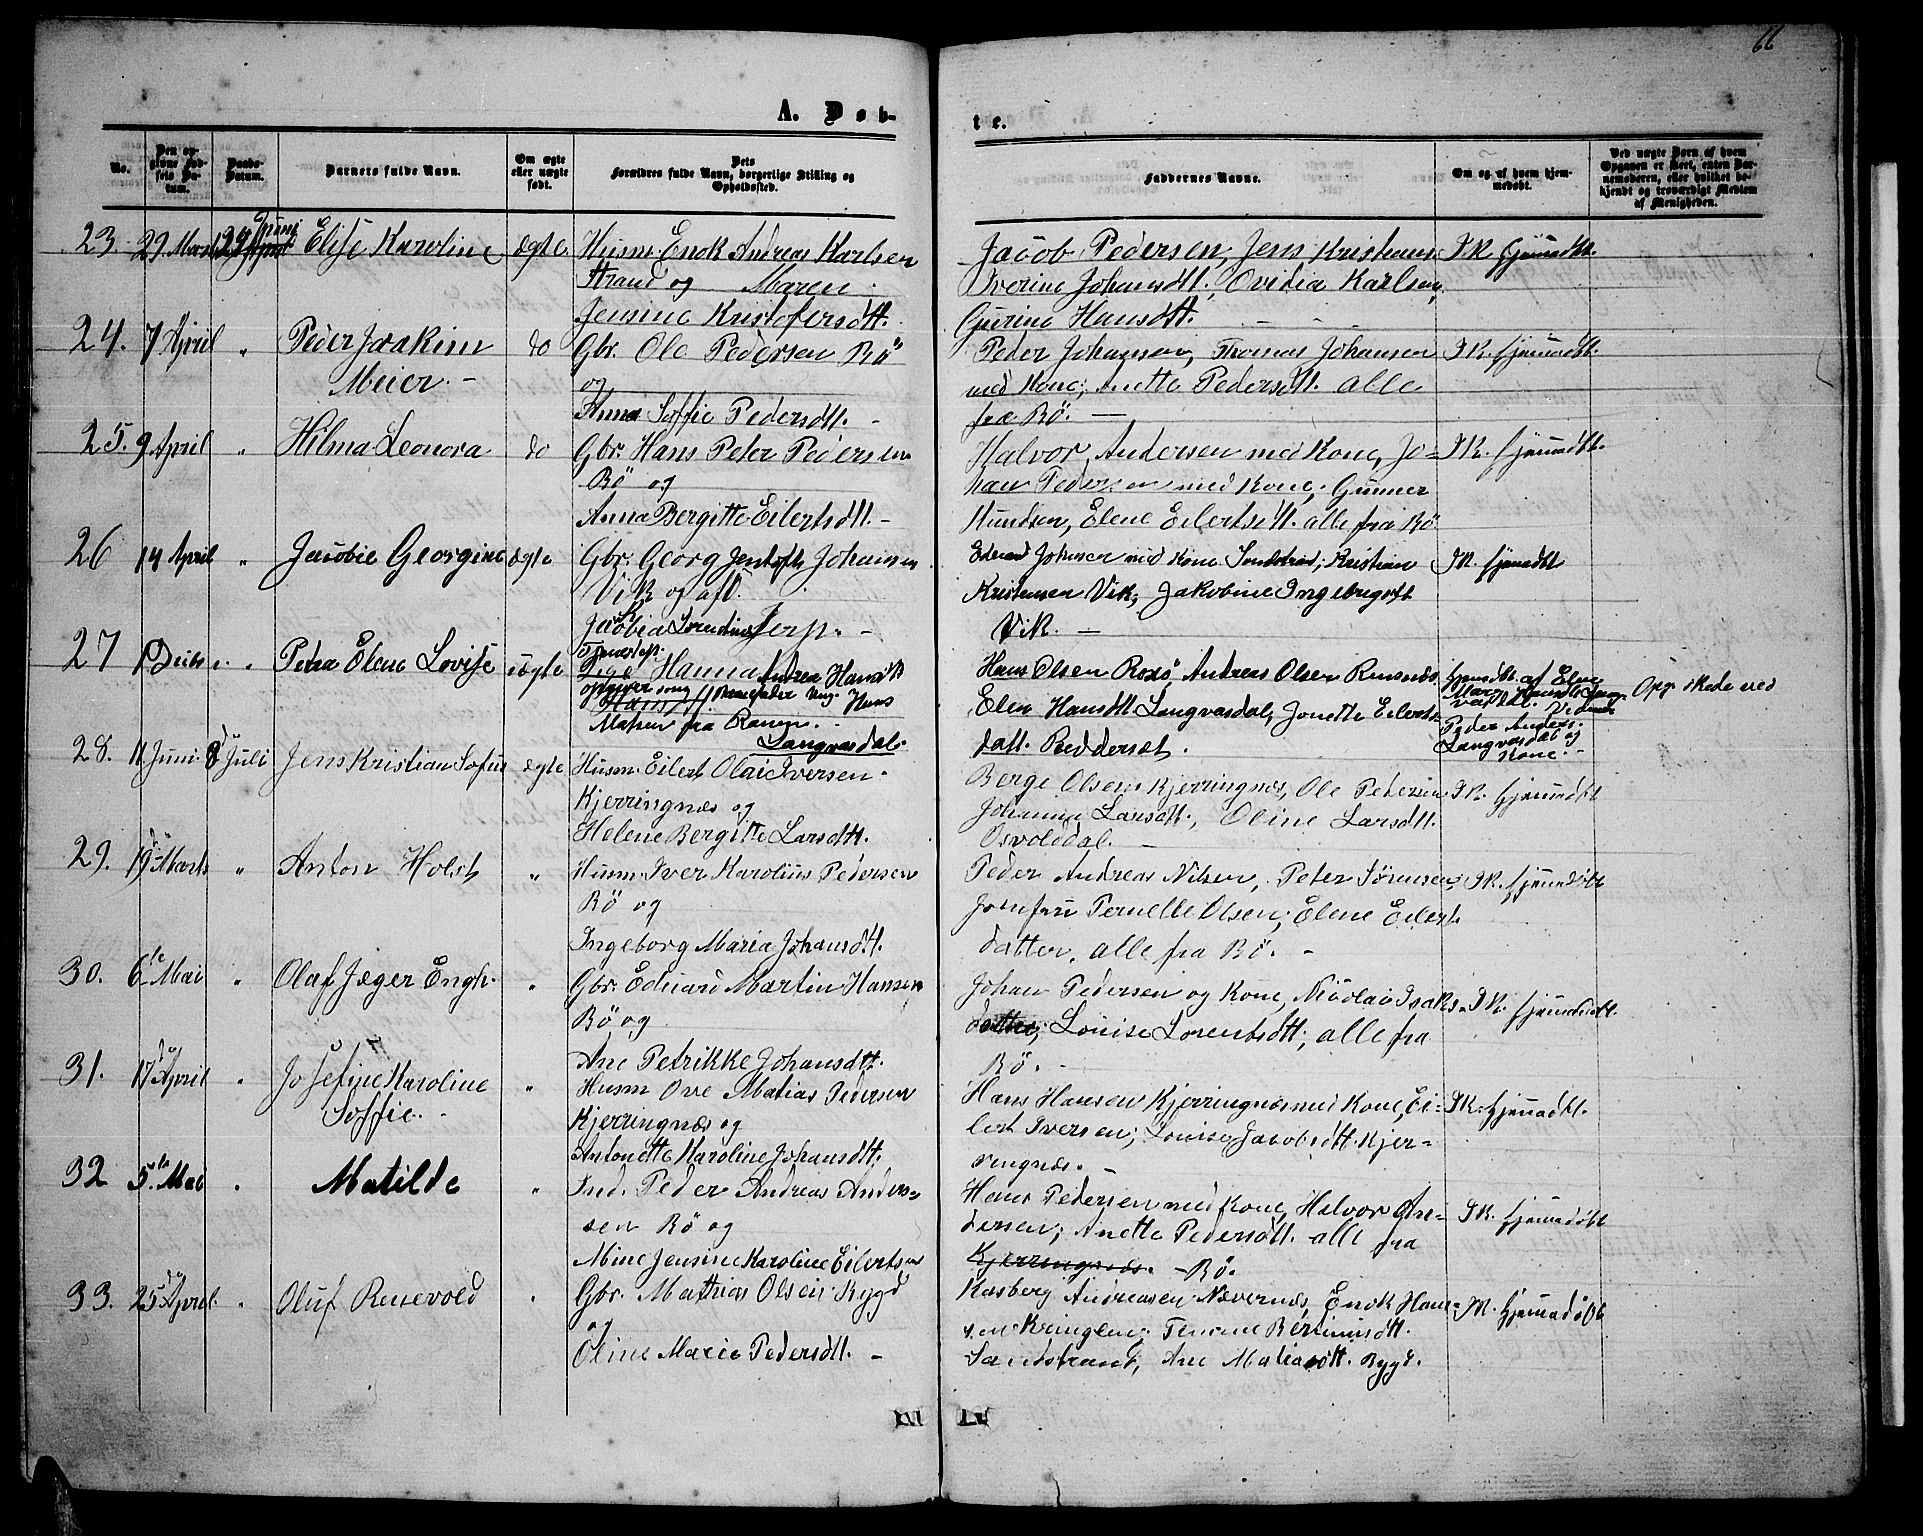 66
A. Døb-
te.
No.
Den opgivne Fødsels Datum.
Daabs-Datum.
Barnets fulde Navn.
Om ægte eller uægte født.
Dets Forældres fulde Navn, borgerlige Stilling og Opholdssted.
Faddernes Navne.
Om og af hvem hjemmedøbt.
Ved uægte Børn af hvem Opgaven er skeet, enten Barnemoderen, eller hvilket bekjendt og troværdigt Medlem af Menigheden.
23 29 Marts 29 Juni Elise Karoline ægte Husm. Enok Andreas Karlsen
Strand og Maren
Jensine Kristofersdtt.
Jacob Pedersen, Jens Kristians.
Iverine Johansdtt. Ovidia Karlsen,
Gurine Hansdtt.
IK. hjemmdbt.
24. 7 April " Peder Joakim do Gbr. Ole Pedersen Bö
Meier. og
Anna Soffie Pedersdtt.
Peder Johansen, Thomas Johansen
med Kone; Anette Pedersdtt. alle
fra Bö.
IK. hjemmdbt.
25. 9 April " Hilma Leonora do Gbr. Hans Peter Pedersen
Bö og
Anna Bergitte Eilertsdtt.
Halvor Andersen med Kone, Jo-
han Pedersen med Kone; Gunner
Knudsen, Elene Eilertsdtt. alle fra Bö
IK. hjemmdbt.
26 14 April " Jacobie Georgine ægte Gbr. Georg Jentoft Johansen
Vik og afd.
Jakobia Terp.
med Kone Kristian
Kristensen Vik, Jakobine Ingebrigsdt
Vik.
IK. hjemmdbt
27 " Petra Elene Lovise uægte
Pige Hanna Andrea Hansdtt
opgiver som Barnefader Ung. Hans
Matsen fra Ranen.
Langvasdal.
Hans Olsen Andreas Olsen
Elen Hansdtt Langvasdal, Jonette Eilerts-
datt.
hjemdbt. af Elen
Peder Anders.
Langvasdal og
Kone.
Opg. skede ved
28. 11 Juni 8 Juli Jens Kristian Sofus ægte Husm. Eilert Olai Iversen
Kjerringnæs og
Helene Bergitte Larsdtt.
Berge Olsen Kjerringnæs, Ole Pedersen
Johanna Larsdtt., Oline Larsdtt.
Osvolddal.
IK. hjemmdbt
29. 19 Marts " Anton Holst " Husm. Iver Karolius Pedersen
Bö og
Ingeborg Maria Johansdtt.
Peder Andreas Nilsen, Peter Sörensen
Jomfru Pernelle Olsen; Elene Eilert
datter, alle fra Bö.
IK. hjemmdöbt
30. 6te Mai " Olaf Jæger Engh. " Gbr. Eduard Martin Hansen
Bö og
Ane Petrikke Johansdtt.
Johan Pedersen og Kone, Nicolai Isaks.
Louise Lorentsdtt; alle fra
Bö.
IK. hjemmdöbt.
31. 17 April " Josefine Karoline " Husm Ove Matias Pedersen
Soffie. Kjerringnæs og
Antonette Karoline Johansdtt.
Hans Hansen Kjerringnæs med Kone, Ei-
lert Iversen; Louise Jacobsdtt. Kjer-
ringnæs.
IK. hjemmdbt.
32 5te Mai " Matilde " Ind. Peder Andreas Ander-
sen Bö og
Mine Jensine Karoline Eilertsen
Hans Pedersen med Kone, Halvor An-
dersen; Anette Pedersdtt. alle fra
Kjerringnæs. - Bö.
IK. hjemmdöbt
33. 25 April. " Oluf Rusevold " Gbr. Mathias Olsen Bygd
og
Oline Marie Pedersdtt.
Kasberg Andreasen Nævernæs, Enok Han-
sen Kringlen;
Sandstrand, Ane Matiasdtt. Bygd.
IK. hjemmdöbt